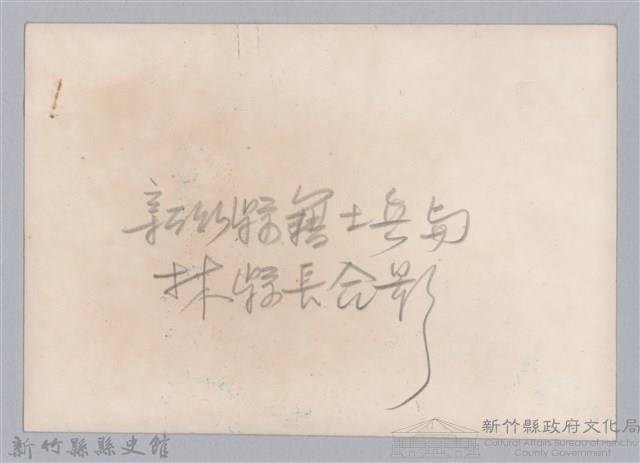 新竹縣籍士兵与
林縣長合影
新竹縣縣史館
新竹縣政府文化局
Cultural Affairs Bureau of Hsinchu
County Government